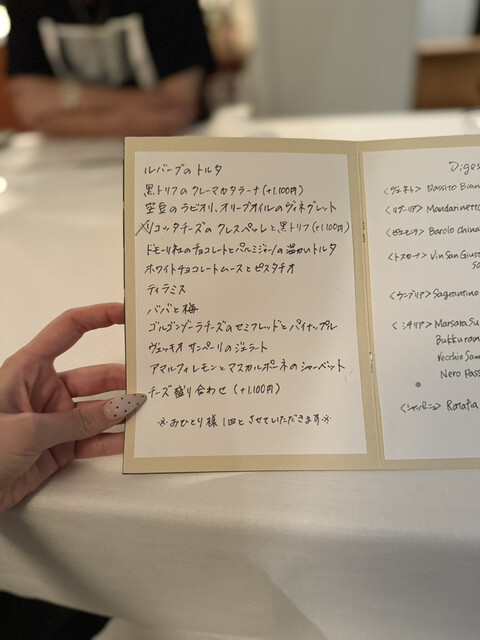 ルバーブのトルタ
黒トリフのクレーマカタラーナ(+1.100円)
空豆のラビオリ、オリーブオイルのヴィネグレット
リコッタチーズのクレスペッレと黒トリフ(+1.100円)
ドモーリ社のチョコレートとパルミジャーノの温かいトルタ
ホワイトチョコレートムースとピスタチオ
ティラミス
ババと梅
ゴルゴンゾーラチーズのセミフレッドとパイナップル
ヴェッキオ サンペーリのジェラート
アマルフィレモンとマスカルポーネのシャーベット
チーズ盛り合わせ (+1.100円)
※おひとり様1回とさせていただきます※
Diges
<ヴェネト> Passito Bian
<リグーリア> Mandarinetto
<ピエモンテ> Barolo china
<トスカーナ> Vin San Giust
<ウンブリア> Sagrantino
<シチリア> Marsara Su
Bukkuram
Vecchio Sam
Nero Pass
Ratafia